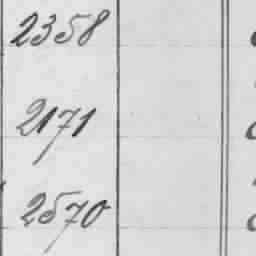 2358
2171
2570